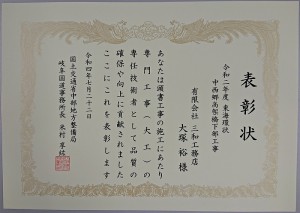 表彰状
令和二年度 東海環状
中西郷高架橋下部工事
有限会社 三和工務店
大塚 裕 様
あなたは頭書工事の施工にあたり
専門工事(大工)の
専任技術者として品質の
確保や向上に貢献されました
ここにこれを表彰します
令和四年七月二十二日
国土交通省中部地方整備局
岐阜国道事務所長